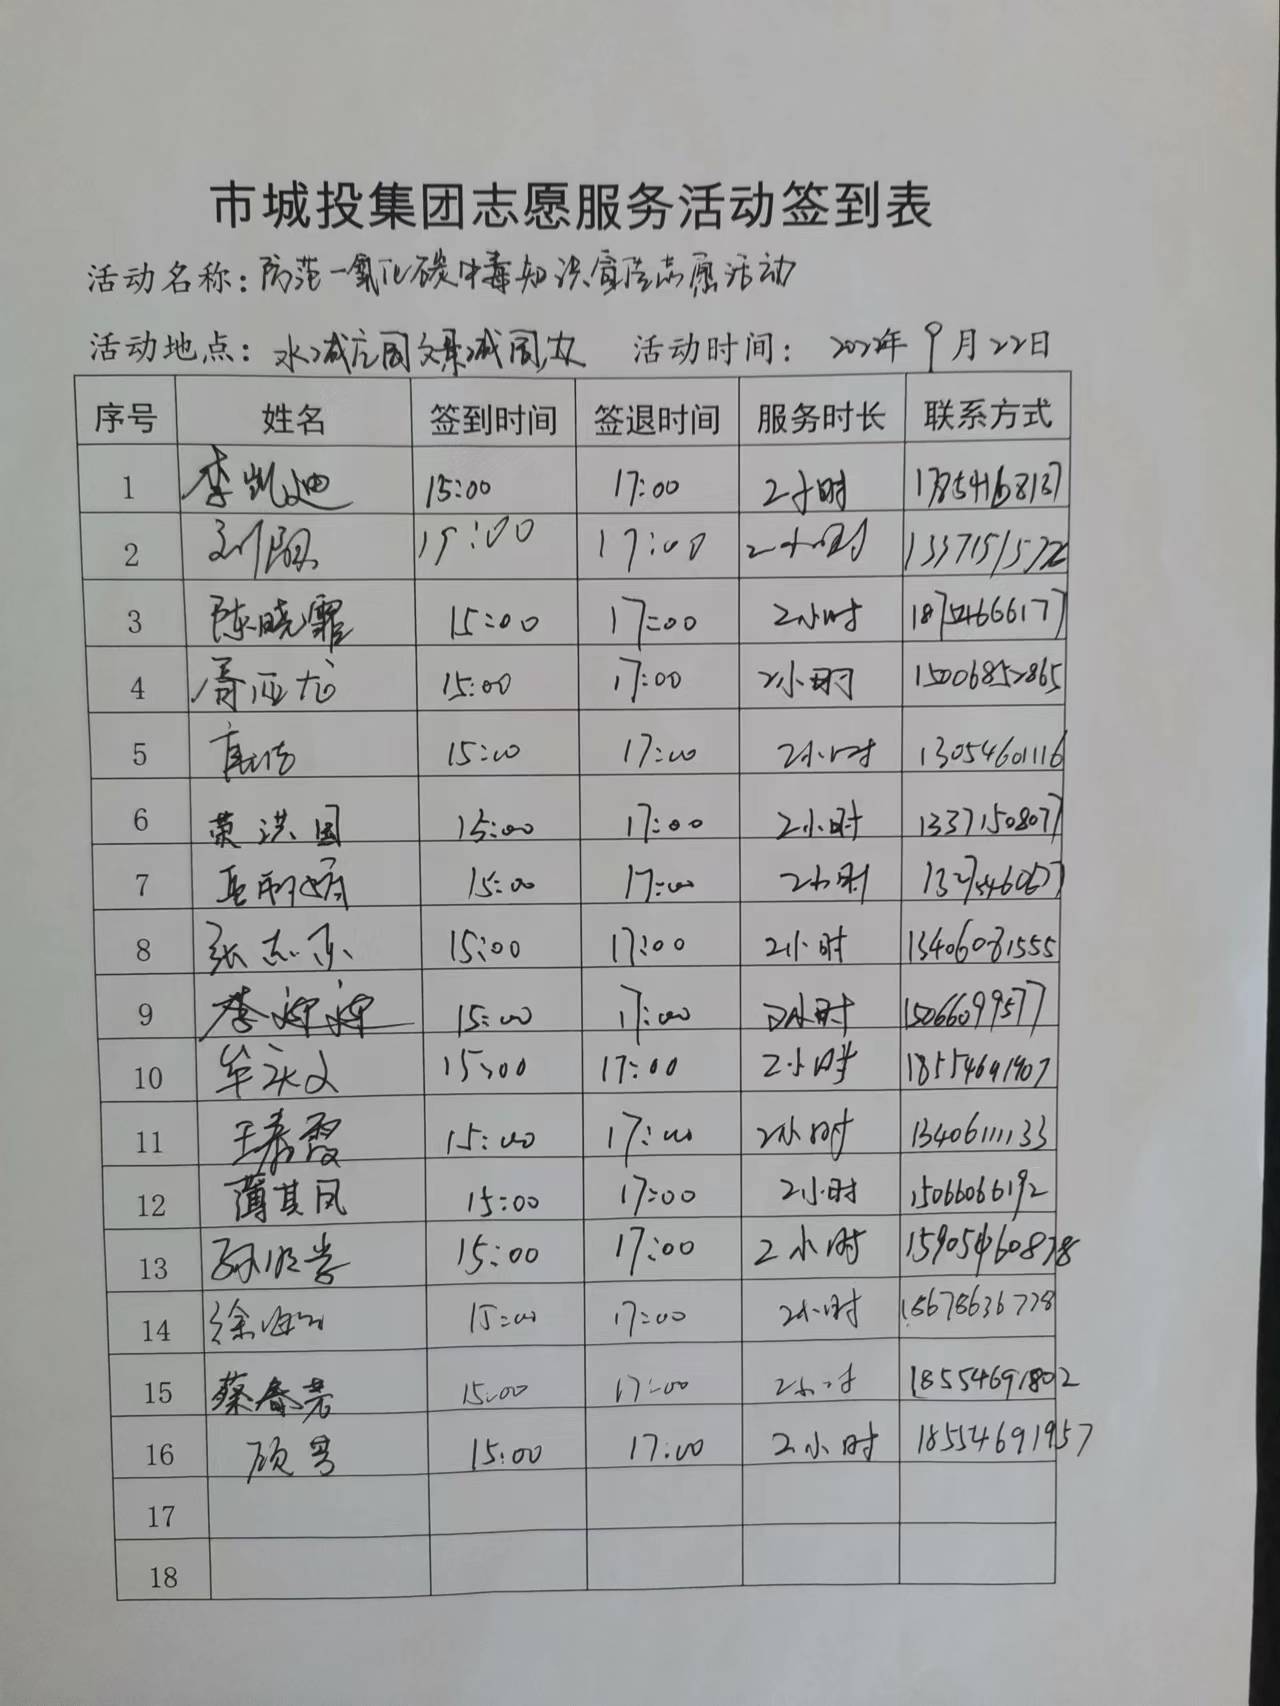 市城投集团志愿服务活动签到表
活动名称：防范一氧化碳中毒知识宣传志愿活动
活动地点： 活动时间：2022年9月22日
序号 姓名 签到时间 签退时间 服务时长 联系方式
1 李凯迪 15:00 17:00 2小时 17854168137
2 刘阳 15:00 17:00 2小时
3 陈晓霏 15:00 17:00 2小时 18754666177
4 胥亚龙 15:00 17:00 2小时 15006852865
5 15:00 17:00 2小时 13054601116
6 黄洪国 15:00 17:00 2小时 13371508077
7 15:00 17:00 2小时
8 张志 15:00 17:00 2小时 13406081555
9 李婷婷 15:00 17:00 2小时 15066099577
10 牟永文 15:00 17:00 2小时 18554691907
11 王春霞 15:00 17:00 2小时 13406111133
12 薄其凤 15:00 17:00 2小时 15066066192
13 15:00 17:00 2小时 15905460878
14 徐海 15:00 17:00 2小时 18678636728
15 蔡春芳 15:00 17:00 2小时 18554691802
16 顾 15:00 17:00 2小时 18554691957
17
18